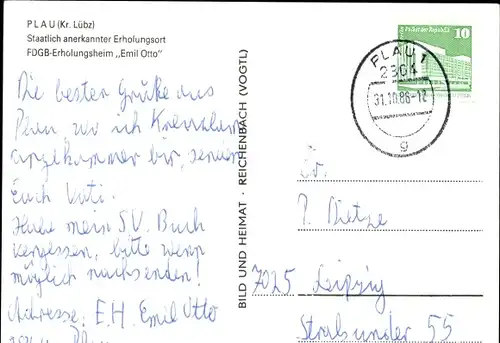 PLAU (Kr. Lübz)
Staatlich anerkannter Erholungsort
FDGB-Erholungsheim „Emil Otto"
Die besten Grüße aus
Plau, wo ich
angekommen bin, sendet
Euch Vati.
Habe mein SV. Buch
vergessen, bitte wenn
möglich nachsenden!
Adresse: E.H. Emil Otto
BILD UND HEIMAT · REICHENBACH (VOGTL)
Palast der Republik 10
PLAU 1
2864
31.10.86-12
g
Dietze
7025 Leipzig
Stralsunder 55